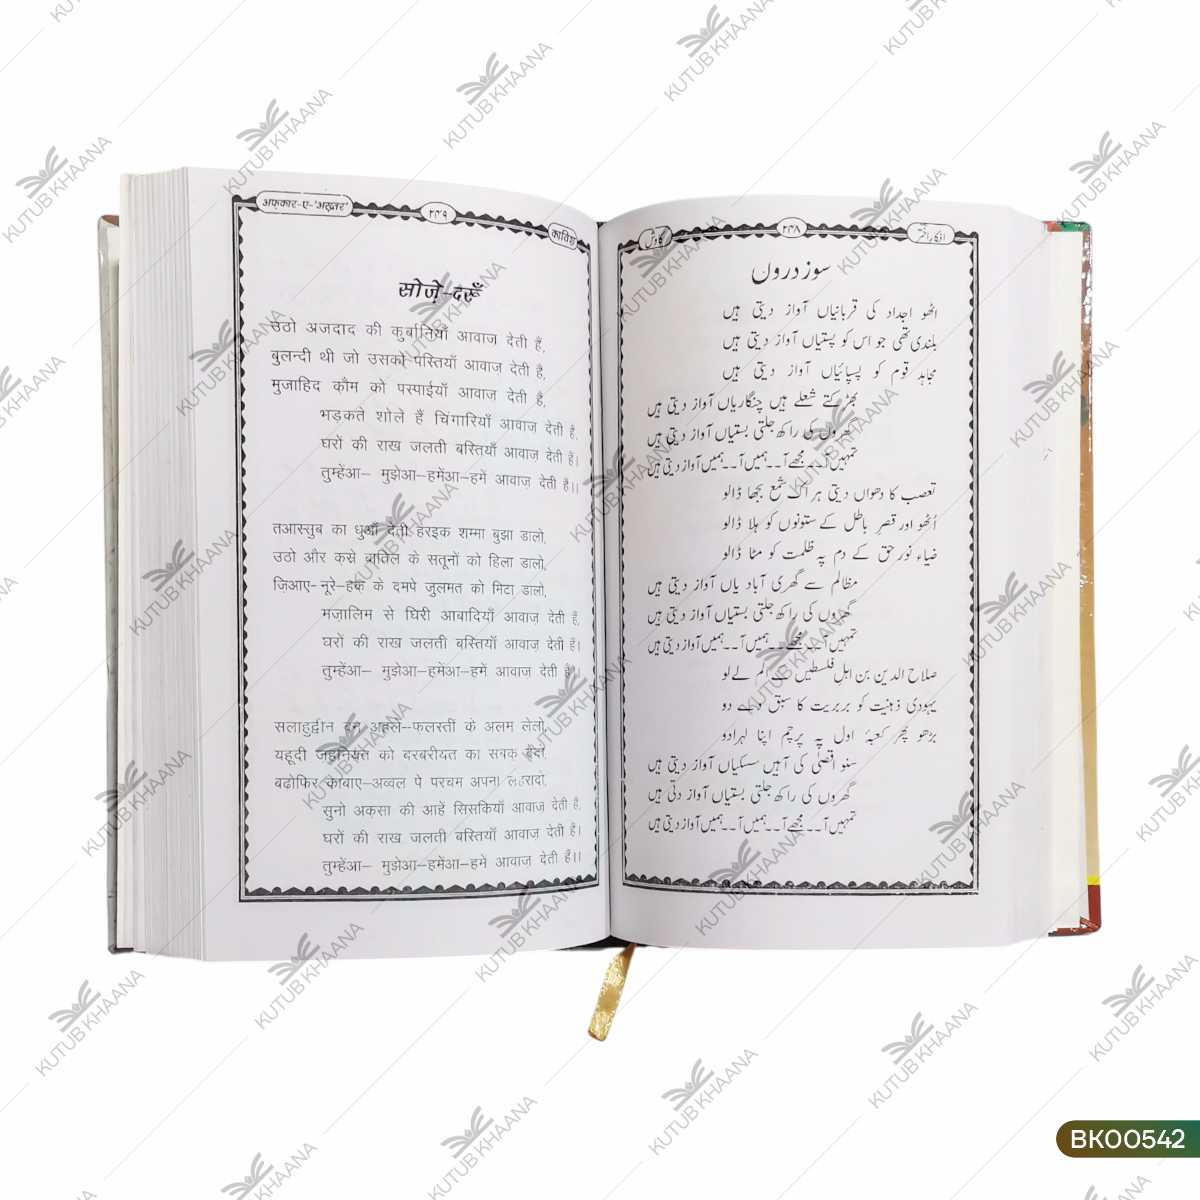 अफ़कार-ए-'अख़्तर'
٢٣٩
काविश
सोज़े-दरूँ
उठो अजदाद की कुर्बानियाँ आवाज देती हैं,
बुलन्दी थी जो उसको पस्तियाँ आवाज देती हैं,
मुजाहिद क़ौम को पस्पाईयाँ आवाज देती हैं,
भड़कते शोले हैं चिंगारियाँ आवाज देती हैं,
घरों की राख जलती बस्तियाँ आवाज देती हैं।
तुम्हेंआ- मुझेआ-हमेंआ-हमें आवाज़ देती हैं।।
तआस्सुब का धुआँ देती हरइक शम्मा बुझा डालो,
उठो और कस्रे बातिल के सतूनों को हिला डालो,
ज़िआए-नूरे-हक़ के दमपे जुलमत को मिटा डालो,
मज़ालिम से घिरी आबादियाँ आवाज़ देती हैं,
घरों की राख जलती बस्तियाँ आवाज़ देती हैं।
तुम्हेंआ- मुझेआ-हमेंआ-हमें आवाज़ देती हैं।।
सलाहुद्दीन बन अहले-फलस्तीं के अलम लेलो,
यहूदी ज़हनियत को दरबरीयत का सबक देदो,
बढ़ोफिर काबाए-अव्वल पे परचम अपना लहरादो,
सुनो अक़सा की आहें सिसकियाँ आवाज़ देती हैं,
घरों की राख जलती बस्तियाँ आवाज़ देती हैं।
तुम्हेंआ- मुझेआ-हमेंआ-हमें आवाज़ देती हैं।।
افکار اختر
٢٣٨
کاوش
سوز دروں
اٹھو اجداد کی قربانیاں آواز دیتی ہیں
بلندی تھی جو اس کو پستیاں آواز دیتی ہیں
مجاہد قوم کو پسپائیاں آواز دیتی ہیں
بھڑکتے شعلے ہیں چنگاریاں آواز دیتی ہیں
گھروں کی راکھ جلتی بستیاں آواز دیتی ہیں
تمہیں آ۔۔مجھے آ۔۔ہمیں آ۔۔ہمیں آواز دیتی ہیں
تعصب کا دھواں دیتی ہر اک شمع بجھا ڈالو
اُٹھو اور قصرِ باطل کے ستونوں کو ہلا ڈالو
ضیاء نور حق کے دم پہ ظلمت کو مٹا ڈالو
مظالم سے گھری آباد یاں آواز دیتی ہیں
گھروں کی راکھ جلتی بستیاں آواز دیتی ہیں
تمہیں آ۔۔مجھے آ۔۔ہمیں آ۔۔ہمیں آواز دیتی ہیں
صلاح الدین بن اہلِ فلسطیں کے الم لے لو
یہودی ذہنیت کو بربریت کا سبق دے دو
بڑھو پھر کعبۂ اول پہ پرچم اپنا لہرادو
سنو اقصٰی کی آہیں سسکیاں آواز دیتی ہیں
گھروں کی راکھ جلتی بستیاں آواز دتی ہیں
تمہیں آ۔۔مجھے آ۔۔ہمیں آ۔۔ہمیں آواز دیتی ہیں
KUTUB KHAANA
BK00542